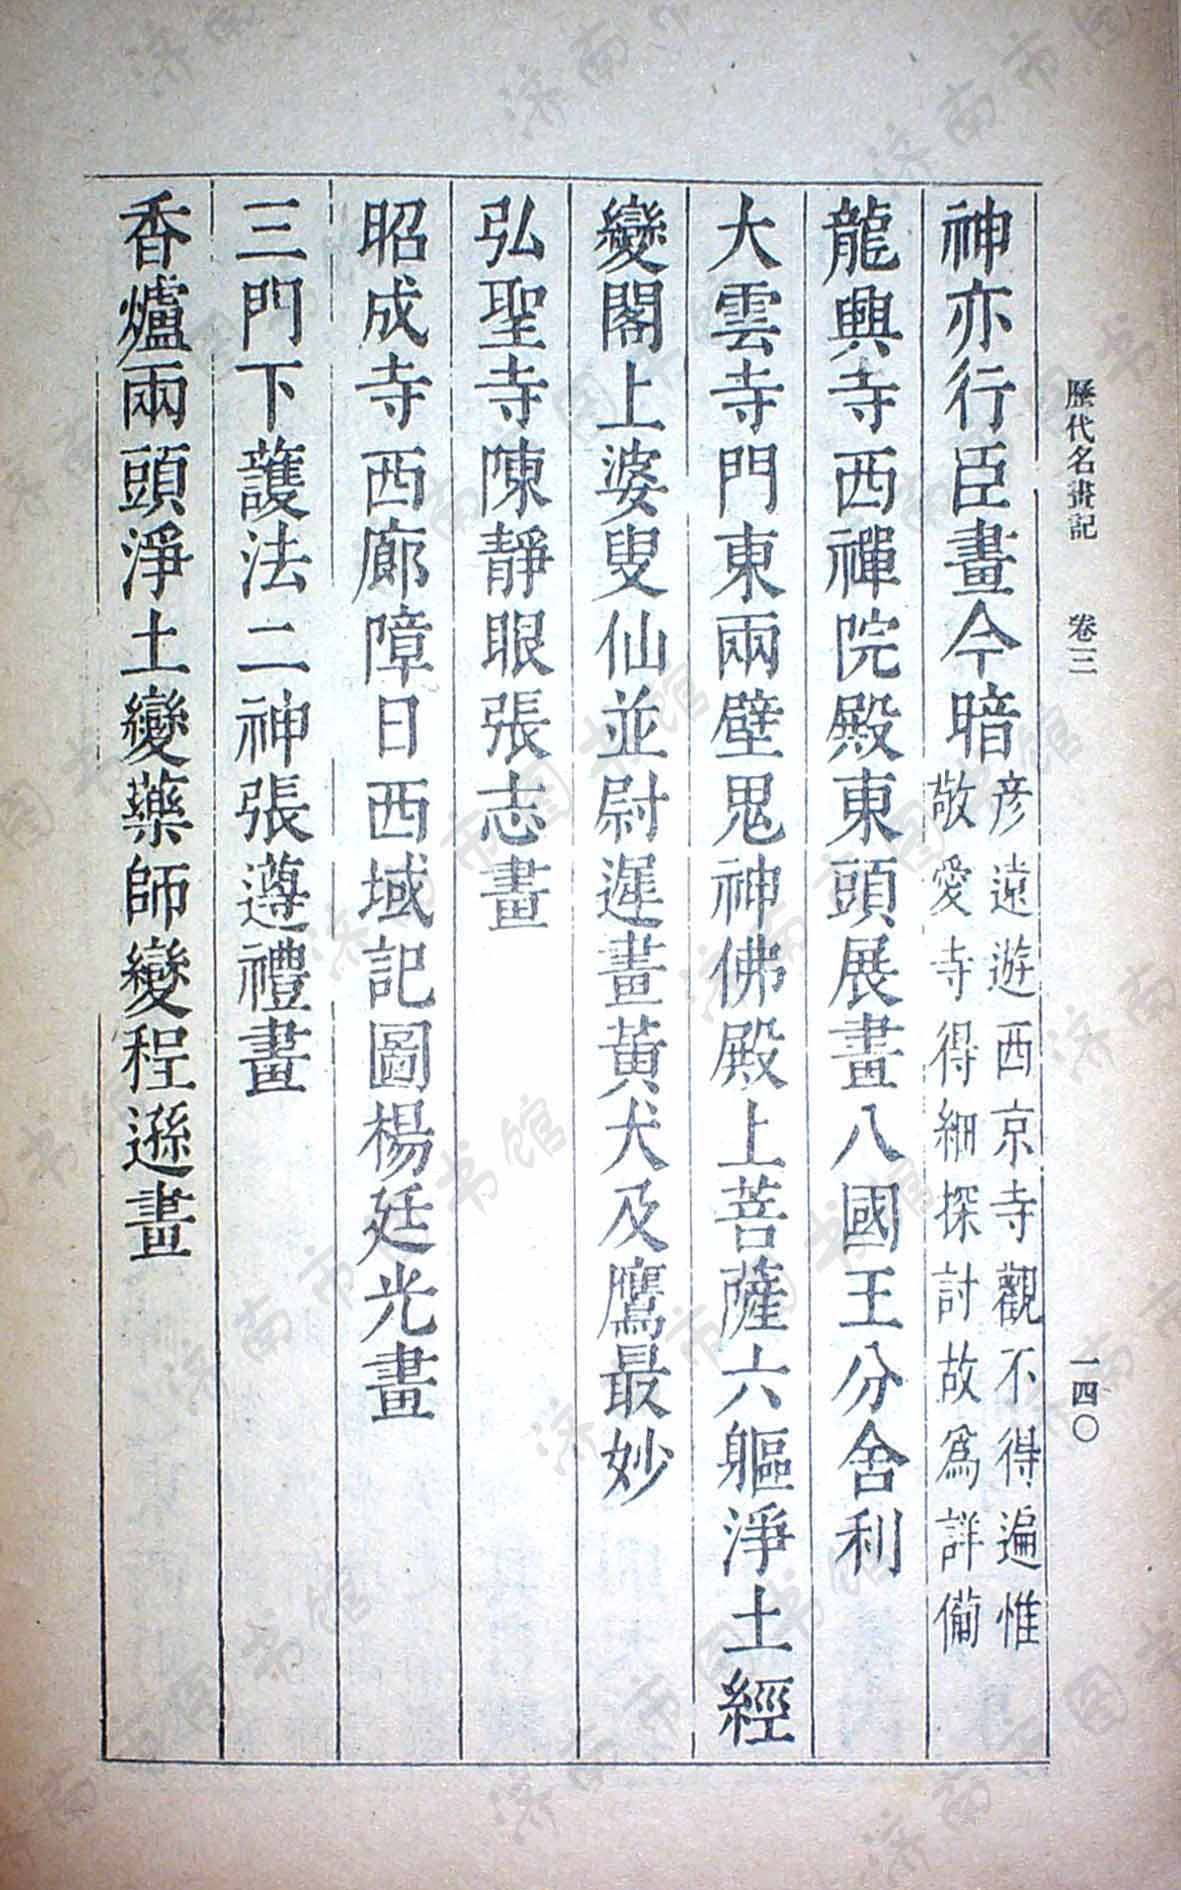 歷代名畫記 卷三 一四〇
神亦行臣畫今暗彥遠遊西京寺觀不得遍惟
敬愛寺得細探討故爲詳備
龍興寺西禪院殿東頭展畫八國王分舍利
大雲寺門東兩壁鬼神佛殿上菩薩六軀淨土經
變閣上婆叟仙並尉遲畫黃犬及鷹最妙
弘聖寺陳靜眼張志畫
昭成寺西廊障日西域記圖楊廷光畫
三門下護法二神張遵禮畫
香爐兩頭淨土變藥師變程遜畫
济南市图书馆